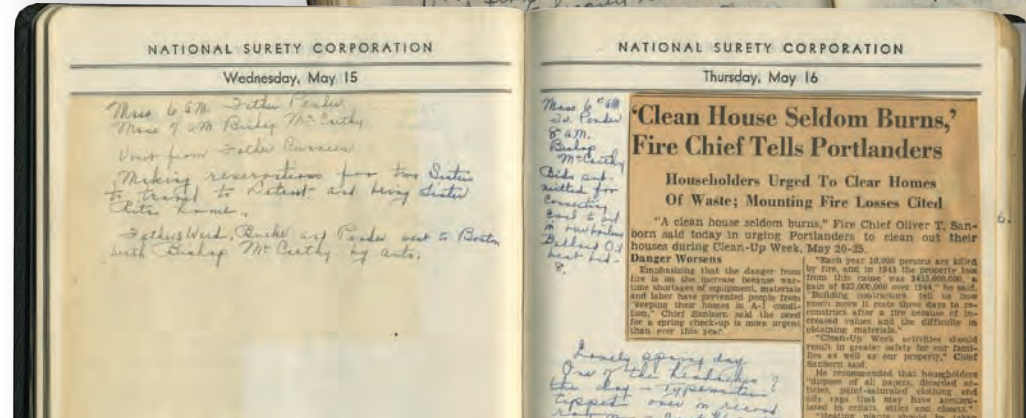 NATIONAL SURETY CORPORATION
Wednesday, May 15
Mass 6 AM. Father Pender
Mass 7 A.M Bishop McCarthy
Visit from Father
Making reservations for two Sisters
to travel to and bring Sister
Rita home.
Fathers Burke and Pender went to Boston
with Bishop McCarthy by auto.
NATIONAL SURETY CORPORATION
Thursday, May 16
Mass 6 AM
Fr. Pender
8 a.m.
Bishop
McCarthy
Bids sub-
mitted for
converting
coal to oil
in
Ballard Oil
heat bid-
Lovely spring day
One of the headaches of
the day - typewriter
tipped over in record
'Clean House Seldom Burns,'
Fire Chief Tells Portlanders
Householders Urged To Clear Homes
Of Waste; Mounting Fire Losses Cited
"A clean house seldom burns," Fire Chief Oliver T. San-
born said today in urging Portlanders to clean out their
houses during Clean-Up Week, May 20-25.
Danger Worsens
Emphasizing that the danger from
fire is on the increase because war-
time shortages of equipment, materials
and labor have prevented people from
"keeping their homes in A-1 condi-
tion," Chief Sanborn said the need
for a spring check-up is more urgent
than ever this year.
"Each year 10,000 persons are killed
by fire, and in 1945 the property loss
from this cause was $455,000,000, a
gain of $32,000,000 over 1944," he said.
"Building contractors tell us how
much more it costs these days to re-
construct after a fire because of in-
creased values and the difficulty in
obtaining materials."
"Clean-Up Week activities should
result in greater safety for our fami-
lies as well as our property," Chief
Sanborn said.
He recommended that householders
"dispose of all papers, discarded ar-
ticles, paint-saturated clothing and
oily rags that may have accumu-
lated in cellars, attics and closets."
6.